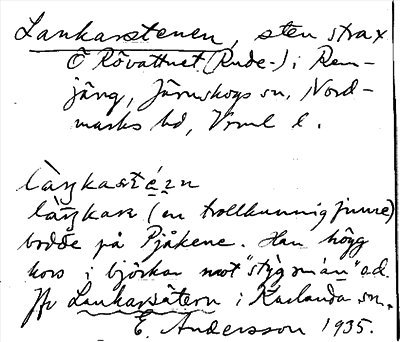 Lankarstenen, sten strax
Ö Rövattnet (Rude-) i Ren-
jäng, Järnskogs sn, Nord-
marks hd, Vrml l.
làŋkastén
làŋkarn (en trollkunnig finne)
bodde på Pjåkene. Han högg
kors i björkar mot "stygsmän" o.d.
Jfr Lankarsätern i Karlanda sn.
E. Andersson 1935.